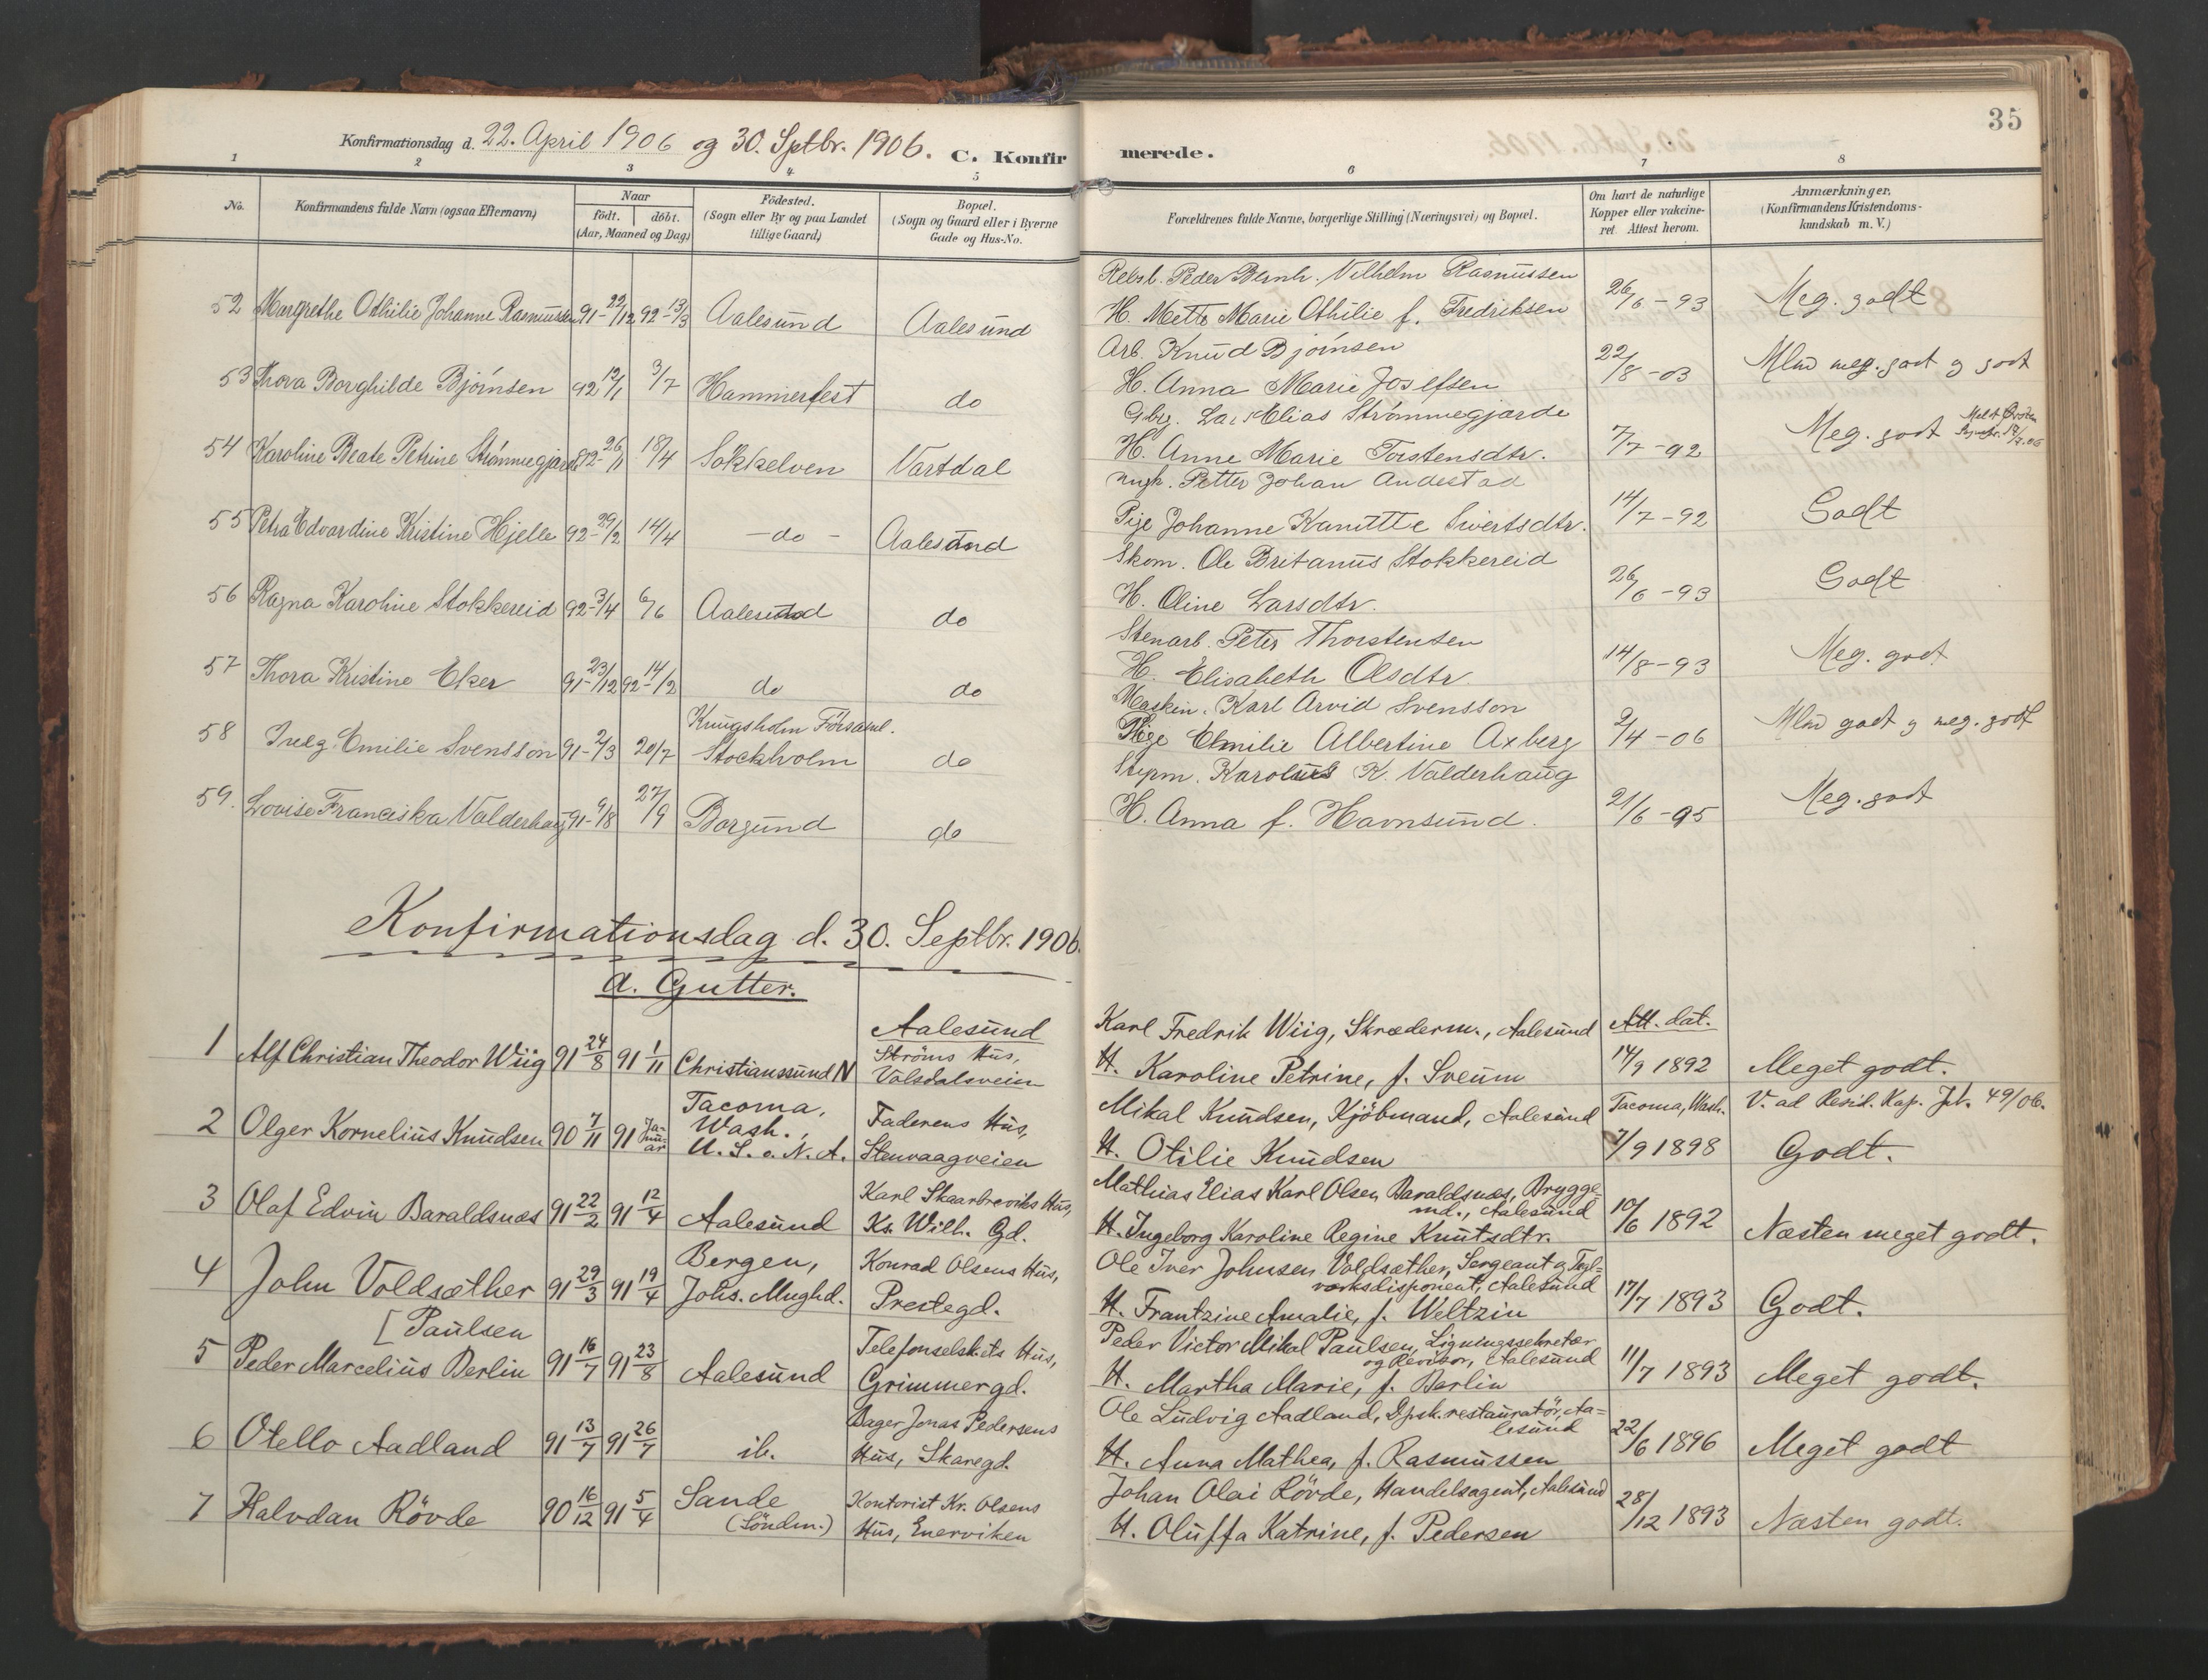 Konfirmationsdag d. 22. April 1906 og 30. Septbr. 1906. C. Konfirmerede. 35
1 2 3 4 5 6 7 8
No. Konfirmandens fulde Navn (ogsaa Efternavn) Naar født. døbt. (Aar, Maaned og Dag) Födested. (Sogn eller By og paa Landet tillige Gaard) Bopæl. (Sogn og Gaard eller i Byerne Gade og Hus-No. Forældrenes fulde Navne, borgerlige Stilling (Næringsvei) og Bopæl. Om havt de naturlige Kopper eller vakcineret Attest herom. Anmærkninger. (Konfirmandens Kristendomskundskab m. V.)
Peder Bernh. Vilhelm Rasmussen
52 Margrethe Othilie Johanne Rasmussen 91-22/12 92-13/3 Aalesund Aalesund H. Mette Marie Othilie f. Fredriksen 26/6-93 Meg. godt
Arb. Knud Bjørnsen
53 Thora Borghilde Bjørnsen 92 12/1 3/7 Hammerfest do H. Anna Marie Josefsen 22/8-03 Mlm meg. godt og godt
Gbr. Lars Elias Strømmegjærde
54 Karoline Beate Petrine Strømmegjærde 92-26/1 18/4 Søkkelven Vartdal H. Anne Marie Torstensdtr. 7/7-92 Meg. godt
Ungk. Petter Johan Andestad
55 Petra Edvardine Kristine Hjelle 92-29/2 14/4 - do - Aalesund Pige Johanne Kanutte Sivertsdtr. 14/7-92 Godt
Skom. Ole Britanus Stokkereid
56 Ragna Karoline Stokkereid 92-3/4 6/6 Aalesund do H. Oline Larsdtr. 26/6-93 Godt
Stenarb. Peter Thorstensen
57 Thora Kristine Eker 91-23/12 92-14/2 do do H. Elisabeth Olsdtr. 14/8-93 Meg. godt
Kungsholm Församl. Maskin. Karl Arvid Svensson
58 Emilie Svensson 91-2/3 20/7 Stockholm do Pige Emilie Albertine Axberg 2/4-06 Mlm godt og meg. godt
Styrm. Karolus K. Valderhaug
59. Lovise Franciska Valderhaug 91-9/8 27/9 Borgund do H. Anna f. Havnsund. 21/6-95 Meg. godt
Konfirmationsdag d. 30. Septbr. 1906.
a. Gutter.
Aalesund Karl Fredrik Wiig, Skræderm., Aalesund Att. dat.
1 Alf Christian Theodor Wiig 91 24/8 91 1/11 Christianssund N Ströms Hus, Volsdalsveien H. Karoline Petrine, f. Sveum 14/9 1892 Meget godt.
Tacoma, Mikal Knudsen, Kjöbmand, Aalesund Tacoma, Wash. V. ad Resid. Kap. Jr. 49/06.
2 Olger Kornelius Knudsen 90 7/11 91 Januar Wash., U. S. o. N. A. Faderens Hus, Stenvaagveien H. Otilie Knudsen 7/9 1898 Godt.
Mathias Elias Karl Olsen Baraldsnæs, Bryggemd., Aalesund
3 Olaf Edvin Baraldsnæs 91 22/2 91 12/4 Aalesund Karl Skaarbreviks Hus, Ks. Wilh. Gd. H. Ingeborg Karoline Regine Knutsdtr. 10/6 1892 Næsten meget godt.
Ole Iver Johnsen Voldsæther, Sergeant og Teglværksdisponent, Aalesund
4 John Voldsæther 91 29/3 91 19/4 Bergen, Johs. Mnghd. Konrad Olsens Hus, Prestegd. H. Frantzine Amalie, f. Weltzin 17/7 1893 Godt.
[Paulsen Peder Victor Mikal Paulsen, Ligningssekretær og Revisor, Aalesund
5 Peder Marcelius Berlin 91 16/7 91 23/8 Aalesund Telefonselskets Hus, Grimmergd. H. Martha Marie, f. Berlin 11/7 1893 Meget godt.
Ole Ludvig Aadland, Dpsk.restauratör, Aalesund
6 Otello Aadland 91 13/7 91 26/7 ib. Bager Jonas Pedersens Hus, Skaregd. H. Anna Mathea, f. Rasmussen 22/6 1896 Meget godt
Johan Olai Rövde, Handelsagent, Aalesund
7 Halvdan Rövde 90 16/12 91 5/4 Sande (Söndm.) Kontorist Kr. Olsens Hus, Enerviken H. Oluffa Katrine, f. Pedersen 28/12 1893 Næsten godt.